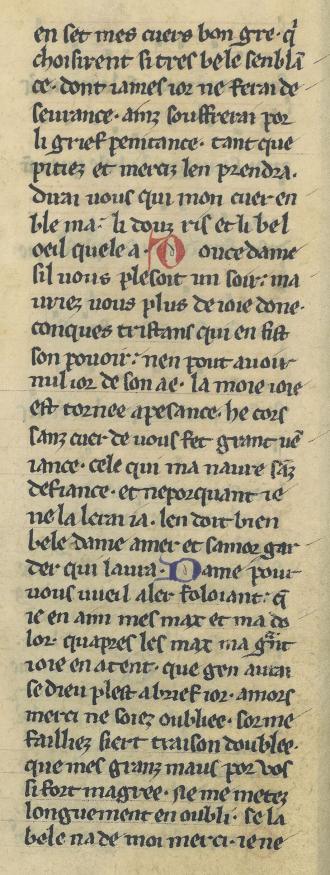 en set mes cuers bon gre · q̇
choisirent si tres bele senblā
ce · dont iames ior ne ferai de
seurance · ainz souffrerai por
li grief penitance · tant que
pitiez et merciz len prendra ·
dirai uous qui mon cuer en
ble ma · li douz ris et li bel
oeil quele a · Douce dame
sil uous plesoit un soir · ma
uriez uous plus de ioie done ·
conques tristans qui en fist
son pouoir · nen pout auoir
nul ior de son ae · la moie ioie
est tornee a pesance · he cors
sanz cuer de uous fet grant uē
iance · cele qui ma naure sāz
defiance · et neporquant ie
ne la lerai ia · len doit bien
bele dame amer et samor gar
der qui laura · Dame pour
uous uueil aler foloiant · q̄
ie en aim mes max et ma do
lor · quapres les max ma g̃nt
ioie en atent · que gen aurai
se dieu plest a brief ior · amors
merci ne soiez oubliee · sor me
failliez siert traison doublee ·
que mes granz maus por uos
si fort magree · Ne me metez
longuement en oubli · se la
bele na de moi merci · ie ne